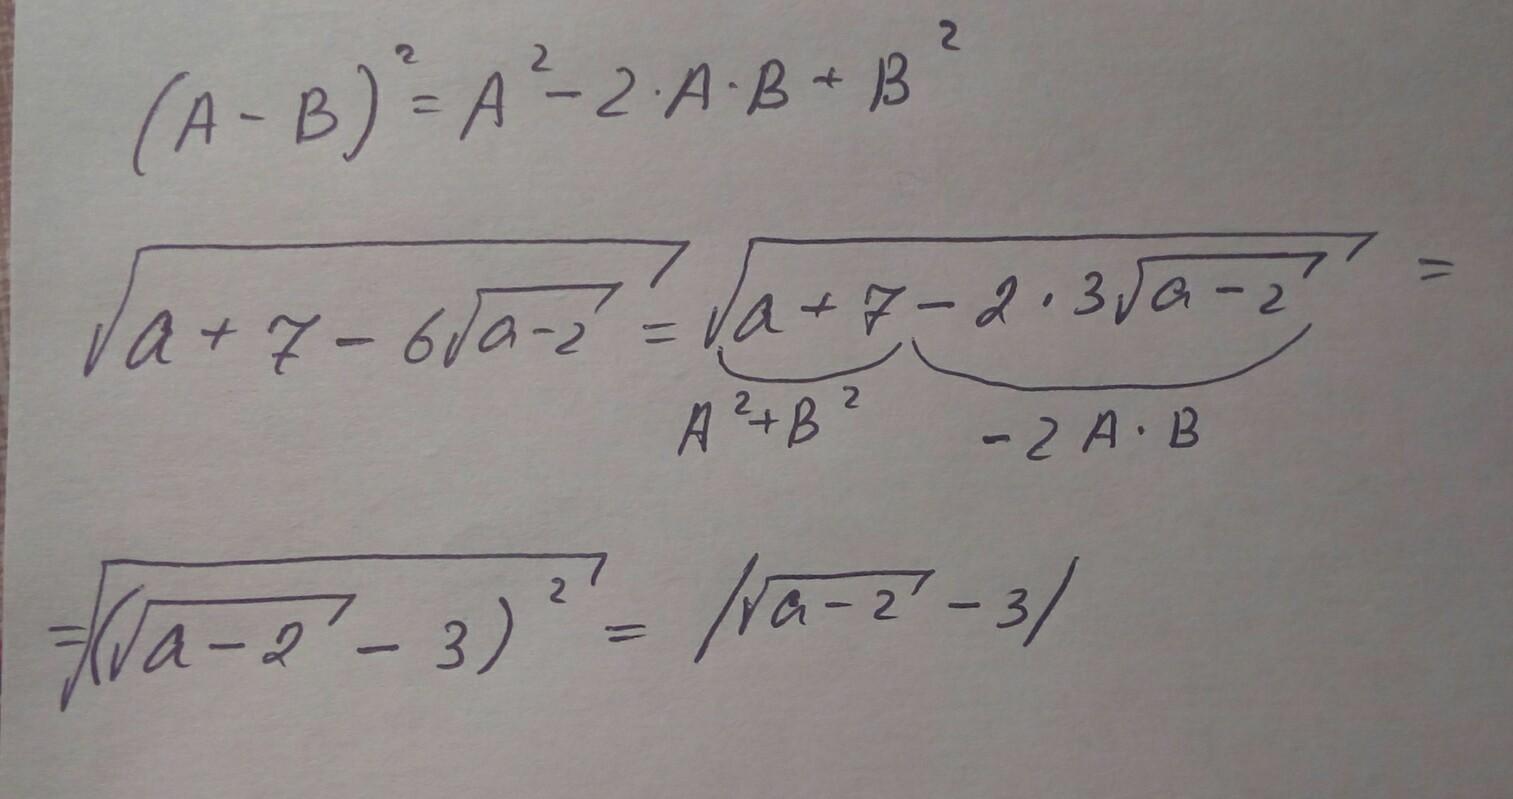 (A - B)² = A² - 2·A·B + B²
√(a + 7 - 6√(a-2)) = √(a + 7 - 2·3√(a-2)) =
A² + B² -2A·B
= √((√(a-2) - 3)²) = |√(a-2) - 3|